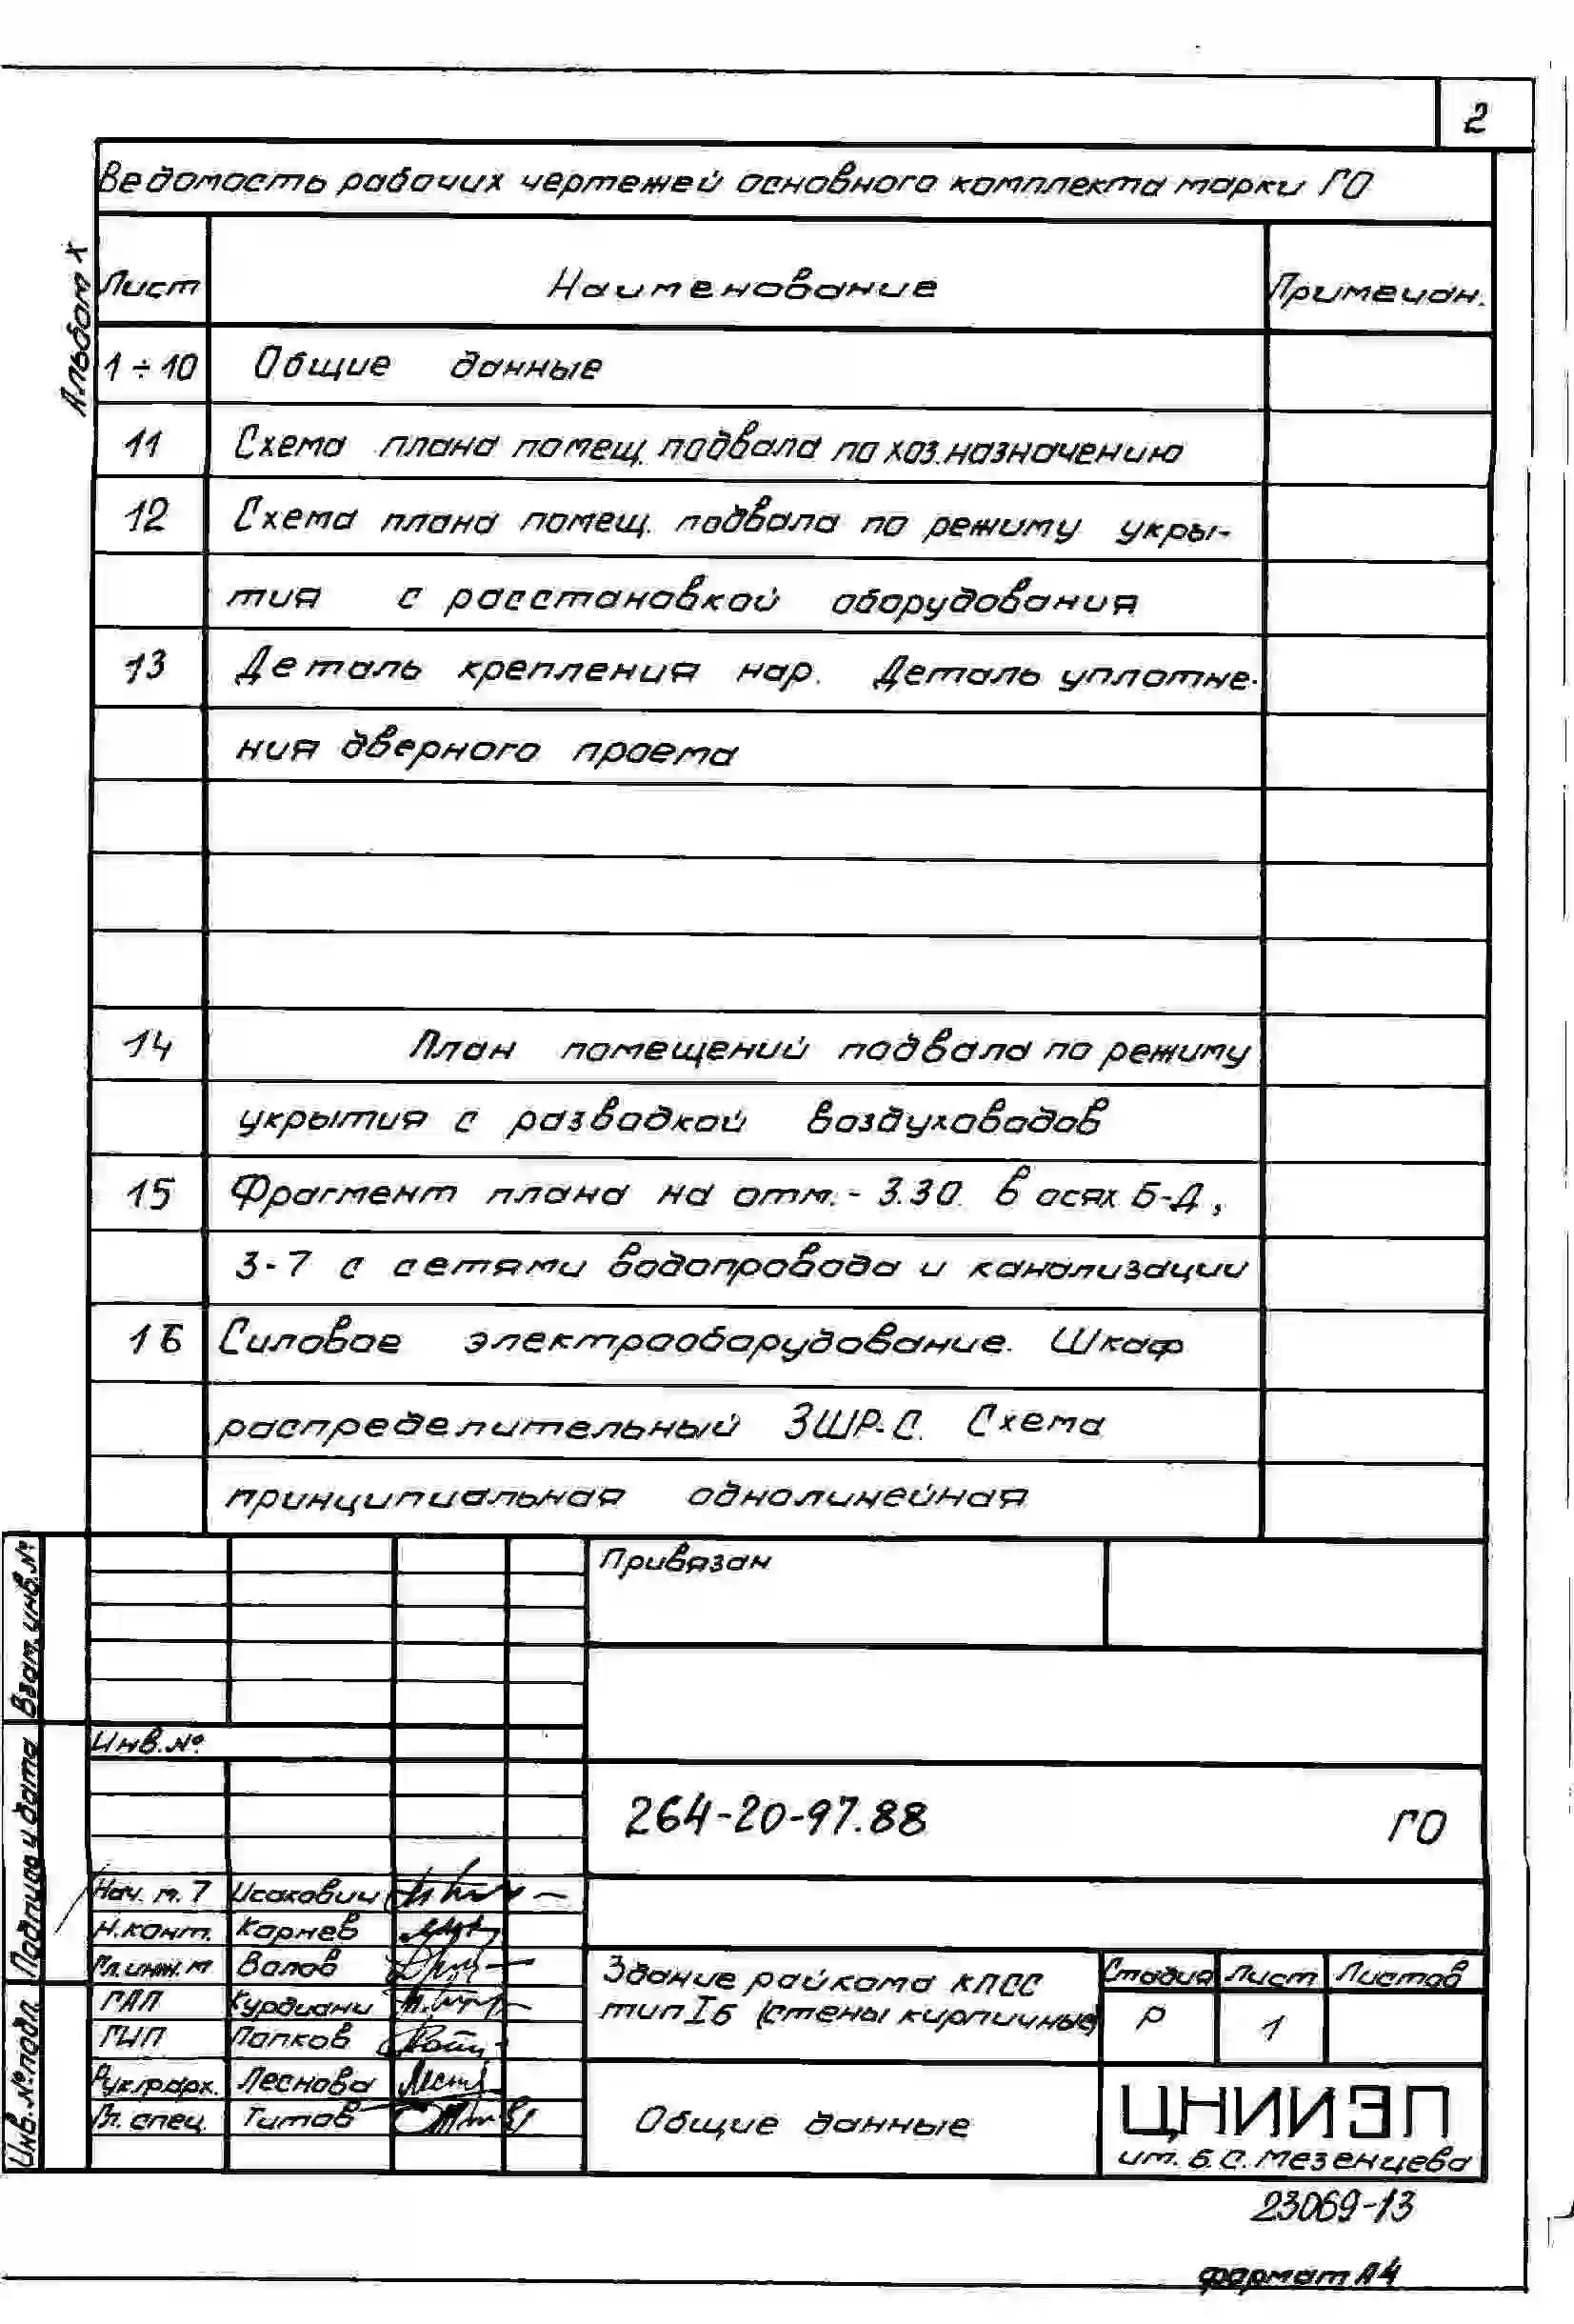 2
Ведомость рабочих чертежей основного комплекта марки ГО
Альбом X
Лист Наименование Примечан.
1÷10 Общие данные
11 Схема плана помещ. подвала по хоз.назначению
12 Схема плана помещ. подвала по режиму укры-
тия с расстановкой оборудования
13 Деталь крепления нар. Деталь уплотне-
ния дверного проема
14 План помещений подвала по режиму
укрытия с разводкой воздуховодов
15 Фрагмент плана на отм.-3.30. в осях Б-Д,
3-7 с сетями водопровода и канализации
16 Силовое электрооборудование. Шкаф
распределительный 3ШР-С. Схема
принципиальная однолинейная
Взам. инв. №
Подпись и дата
Инв. № подл.
Привязан
Инв. №
264-20-97.88 ГО
Нач. м. 7 Исакович
Н.конт. Корнев
Гл.инж.м Валов
ГАП Курдиани
ГИП Папков
Рук.гр.арх. Леснова
Гл. спец. Титов
Здание райкома КПСС
тип Iб (стены кирпичные)
Стадия Лист Листов
Р 1
Общие данные
ЦНИИЭП
им. Б.С. Мезенцева
23069-13
формат А4